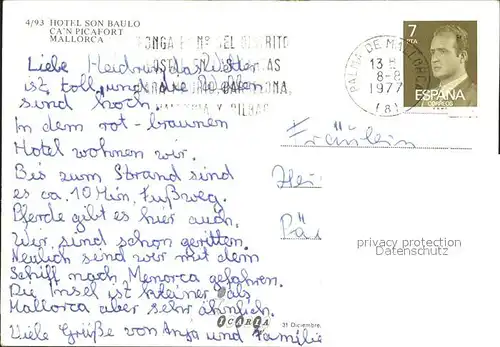 4/93 HOTEL SON BAULO
CA'N PICAFORT
MALLORCA
PONGA EL Nº DEL DISTRITO
POSTAL
BARCELONA,
Y BILBAO
PALMA DE MALLORCA
13 8
8-8
1977
(8)
7
PTA
ESPAÑA
CORREOS
Liebe Heidrun, das Wetter
ist toll, und die Wellen
sind hoch.
In dem rot-braunen
Hotel wohnen wir.
Bis zum Strand sind
es ca. 10 Min. Fußweg.
Pferde gibt es hier auch.
Wir sind schon geritten.
Neulich sind wir mit dem
Schiff nach Menorca gefahren.
Die Insel ist kleiner als
Mallorca aber sehr ähnlich.
Viele Grüße von Anja und Familie
Fräulein
Hei
Pä
privacy protection
Datenschutz
ICARIA
31 Diciembre.